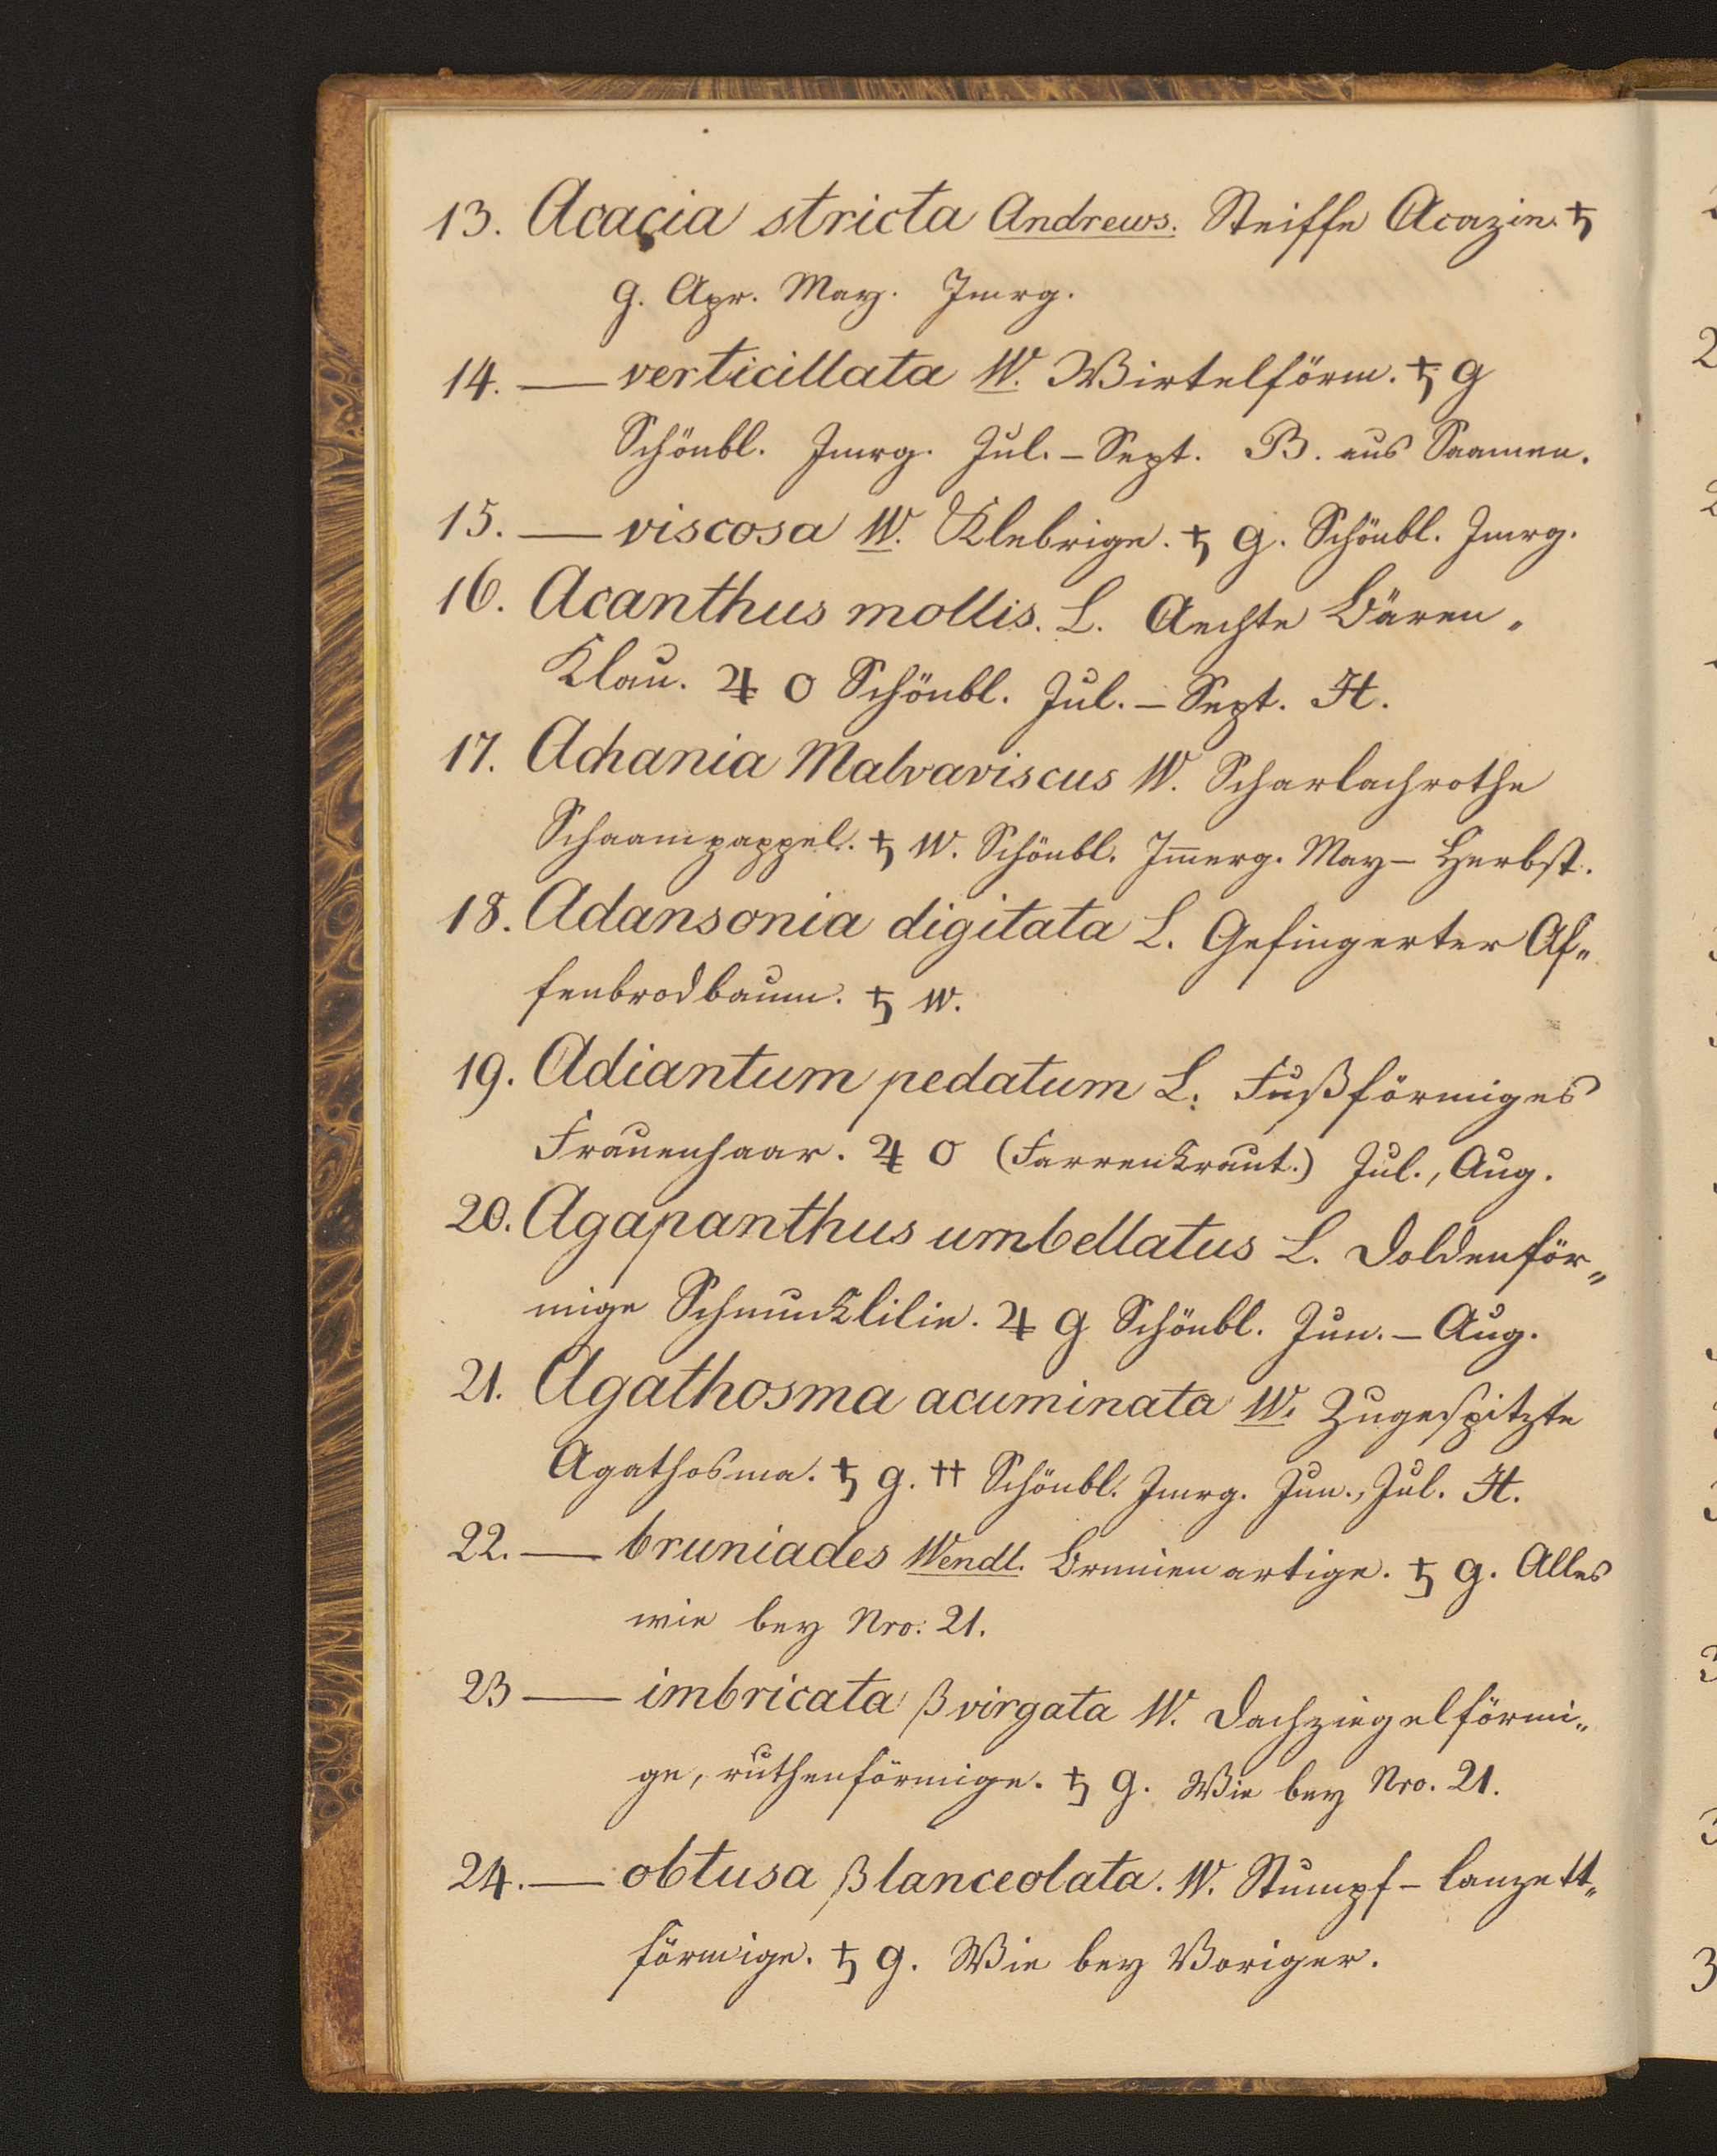 13. Acacia stricta Andrews. Steiffe Acazie. ♄
g. Apr. May. Imrg.
14. — verticillata W. Wirtelförm. ♄ g
Schönbl. Imrg. Jul. – Sept. B. aus Saamen.
15. — viscosa W. Klebrige. ♄ g. Schönbl. Imrg.
16. Acanthus mollis. L. Aechte Bären„
Klau. ♃ O Schönbl. Jul. – Sept. H.
17. Achania Malvaviscus W. Scharlachrothe
Schaampappel. ♄ W. Schönbl. Im̅erg. May – Herbst.
18. Adansonia digitata L. Gefingerter Af„
fenbrodbaum. ♄ W.
19. Adiantum pedatum L. Fußförmiges
Frauenhaar. ♃ O (Farrenkraut.) Jul., Aug.
20. Agapanthus umbellatus L. Doldenför„
mige Schmucklilie. ♃ g Schönbl. Jun. – Aug.
21. Agathosma acuminata W. Zugespitzte
Agathosma. ♄ g. †† Schönbl. Imrg. Jun., Jul. H.
22. — bruniades Wendl. Brunienartige. ♄ g. Alles
wie bey Nro. 21.
23 — imbricata β virgata W. Dachziegelförmi„
ge, ruthenförmige. ♄ g. Wie bey Nro. 21.
24. — obtusa β lanceolata. W. Stumpf – lanzett„
förmige. ♄ g. Wie bey Voriger.